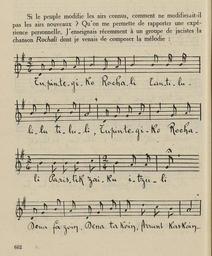 Si le peuple modifie les airs connus, comment ne modifierait-il
pas les airs nouveaux ? Qu'on me permette de rapporter une expé-
rience personnelle. J'enseignais récemment à un groupe de jacistes la
chanson Rochali dont je venais de composer la mélodie :
Tupinte-gi-ko Rocha-li Tanti-lu-
li-lu ti-lu-li, Tupinte-gi-ko Rocha-
li Paris-tik zai-ku i-tzu-li
Dena fa-zoin, Dena ta koin, Arrunt kaskoin
602